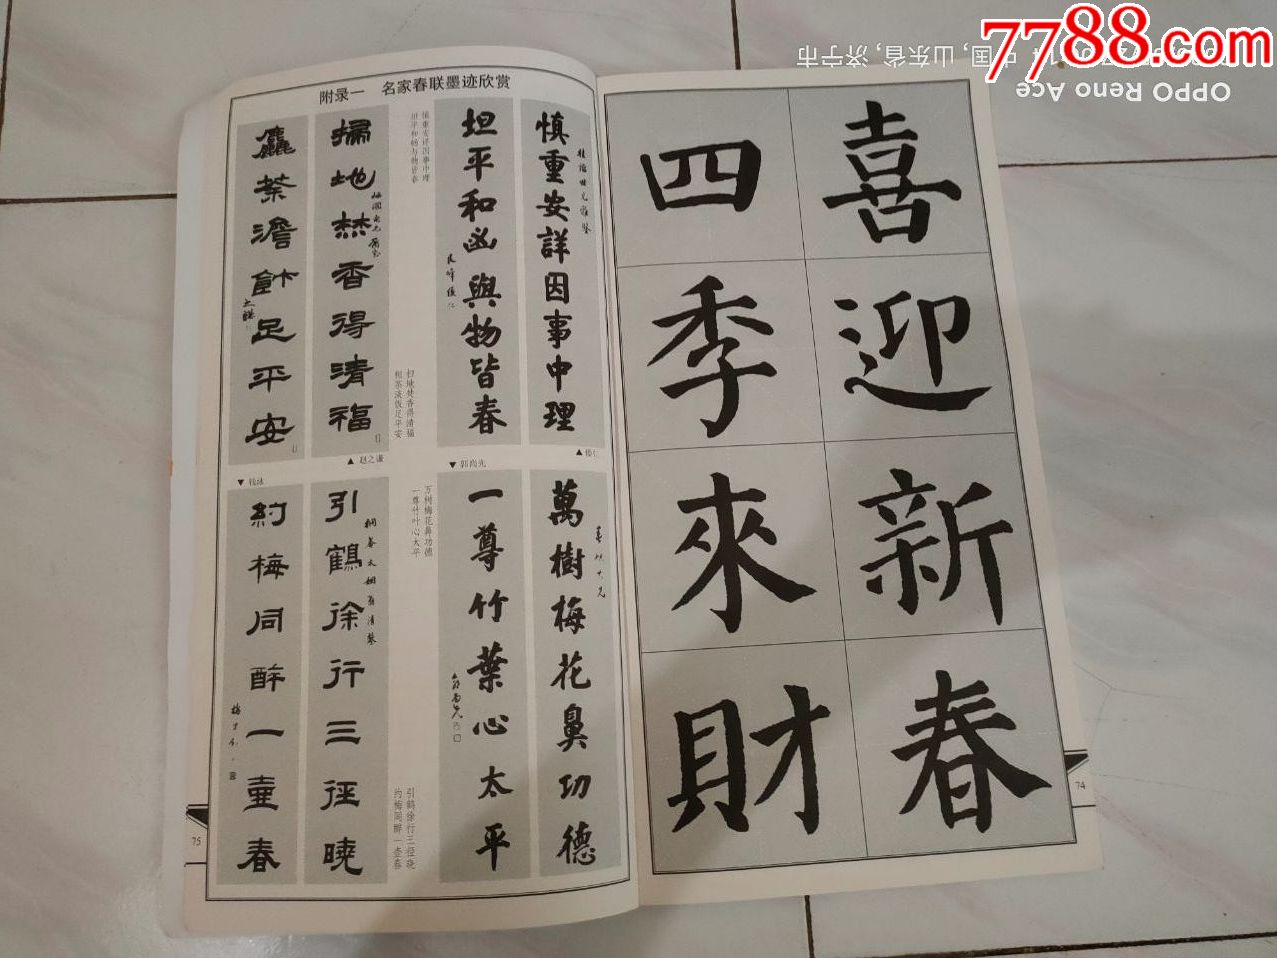 7788.com
中国，山东省，济宁市
OPPO Reno Ace
喜迎新春
四季來財
74
附录一 名家春联墨迹欣赏
慎重安詳因事中理
坦平和㐫與物皆春
慎重安详因事中理
坦平和畅与物皆春
掃地焚香得清福
麤茶澹飰足平安
扫地焚香得清福
粗茶淡饭足平安
▲赵之谦
▼郭尚先
萬樹梅花鼻功德
一尊竹葉心太平
万树梅花鼻功德
一尊竹叶心太平
▼钱泳
引鶴徐行三徑曉
約梅同醉一壷春
引鹤徐行三径晓
约梅同醉一壶春
75